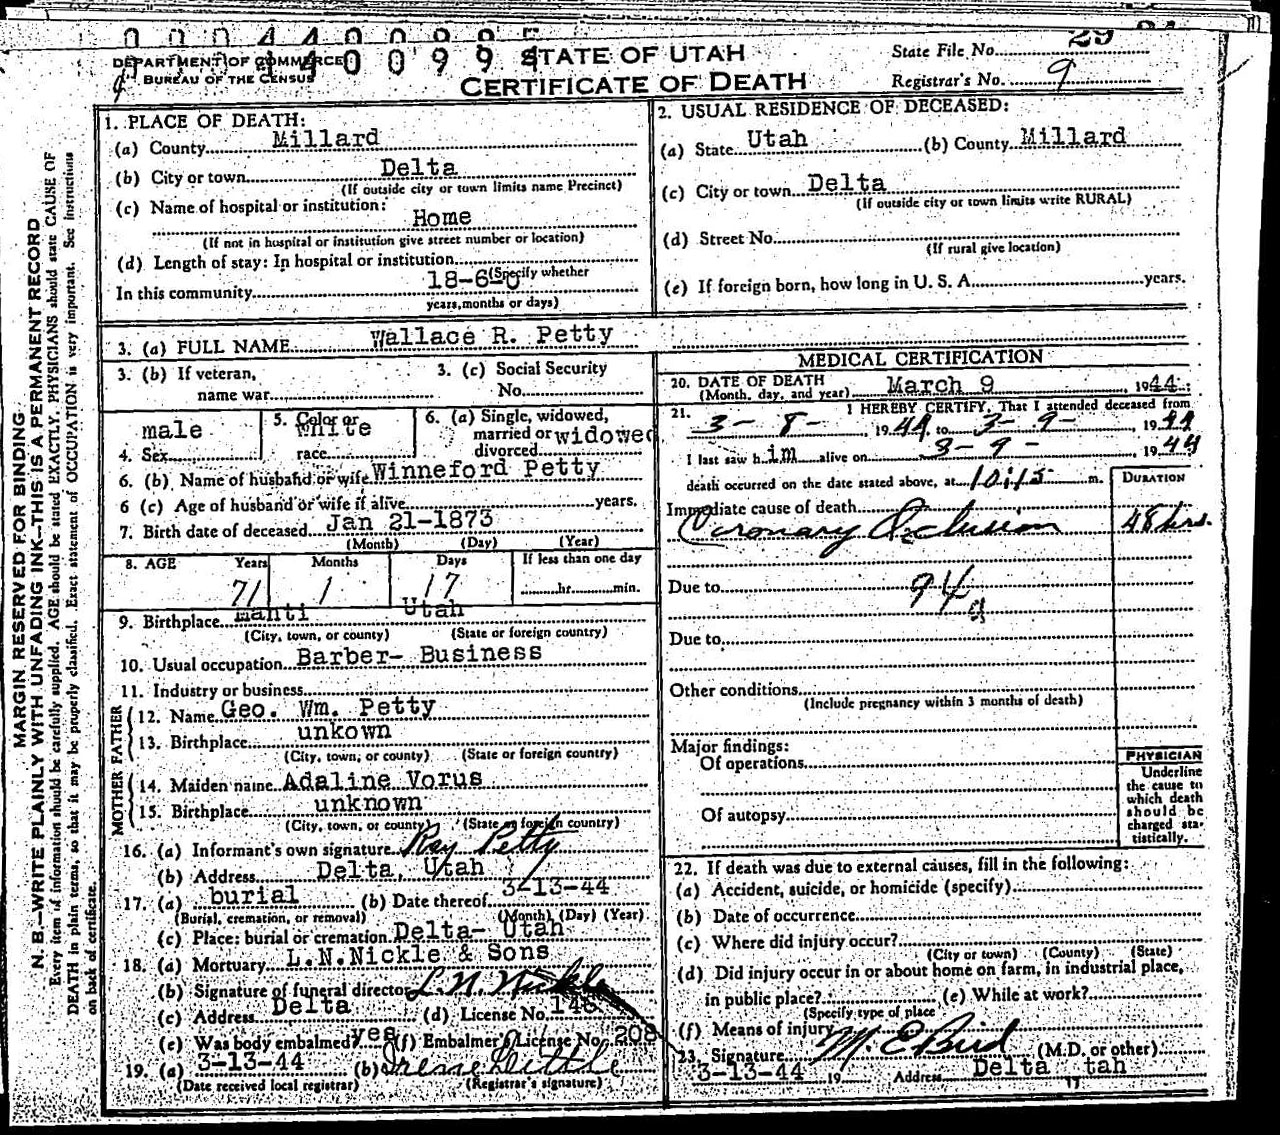 DEPARTMENT OF COMMERCE
BUREAU OF THE CENSUS
STATE OF UTAH
CERTIFICATE OF DEATH
State File No. 29
Registrar's No. 9
MARGIN RESERVED FOR BINDING
N. B.—WRITE PLAINLY WITH UNFADING INK—THIS IS A PERMANENT RECORD
Every item of information should be carefully supplied. AGE should be stated EXACTLY. PHYSICIANS should state CAUSE OF
DEATH in plain terms, so that it may be properly classified. Exact statement of OCCUPATION is very important. See instructions
on back of certificate.
1. PLACE OF DEATH:
(a) County Millard
(b) City or town Delta
(If outside city or town limits name Precinct)
(c) Name of hospital or institution:
Home
(If not in hospital or institution give street number or location)
(d) Length of stay: In hospital or institution
(Specify whether
In this community 18-6-0
years, months or days)
2. USUAL RESIDENCE OF DECEASED:
(a) State Utah (b) County Millard
(c) City or town Delta
(If outside city or town limits write RURAL)
(d) Street No.
(If rural give location)
(e) If foreign born, how long in U. S. A. years.
3. (a) FULL NAME Wallace R. Petty
3. (b) If veteran,
name war
3. (c) Social Security
No.
4. Sex male
5. Color or
race white
6. (a) Single, widowed,
married or widowed
divorced
6. (b) Name of husband or wife Winneford Petty
6 (c) Age of husband or wife if alive years.
7. Birth date of deceased Jan 21-1873
(Month) (Day) (Year)
8. AGE Years Months Days If less than one day
71 1 17 hr. min.
9. Birthplace Manti Utah
(City, town, or county) (State or foreign country)
10. Usual occupation Barber- Business
11. Industry or business
FATHER
12. Name Geo. Wm. Petty
13. Birthplace unkown
(City, town, or county) (State or foreign country)
MOTHER
14. Maiden name Adaline Vorus
15. Birthplace unknown
(City, town, or county) (State or foreign country)
16. (a) Informant's own signature Ray Petty
(b) Address Delta, Utah
17. (a) burial (b) Date thereof 3-13-44
(Burial, cremation, or removal) (Month) (Day) (Year)
(c) Place: burial or cremation Delta- Utah
18. (a) Mortuary L.N.Nickle & Sons
(b) Signature of funeral director L. N. Nickle
(c) Address Delta (d) License No. 146
(e) Was body embalmed? yes (f) Embalmer's License No. 208
19. (a) 3-13-44 (b) Irene Little
(Date received local registrar) (Registrar's signature)
MEDICAL CERTIFICATION
20. DATE OF DEATH March 9 1944
(Month, day, and year)
21. I HEREBY CERTIFY, That I attended deceased from
3- 8- , 1944 to 3- 9- , 1944
I last saw him alive on 3-9- 1944
death occurred on the date stated above, at 10:15 m.
DURATION
Immediate cause of death
Coronary Occlusion 48 hrs.
Due to 94a
Due to
Other conditions
(Include pregnancy within 3 months of death)
Major findings:
Of operations
Of autopsy
PHYSICIAN
Underline
the cause to
which death
should be
charged sta-
tistically.
22. If death was due to external causes, fill in the following:
(a) Accident, suicide, or homicide (specify)
(b) Date of occurrence
(c) Where did injury occur?
(City or town) (County) (State)
(d) Did injury occur in or about home on farm, in industrial place,
in public place? (e) While at work?
(Specify type of place
(f) Means of injury
23. Signature M. E. Bird (M.D. or other)
3-13-44 19 Address Delta tah